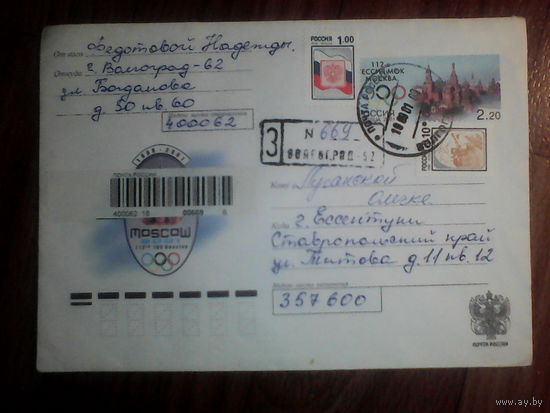 От кого Федотовой Надежды.
Откуда г. Волгоград-62
ул. Богданова
д. 50 кв. 60
Индекс места отправления
400062
РОССИЯ 1.00
112-я
СЕССИЯ МОК
МОСКВА
РОССИЯ
2.20
ПОЧТА РОССИИ
З N 669
ВОЛГОГРАД-62
Кому Луганской
Олеге
Куда г. Ессентуки
Ставропольский край
ул. Титова д. 11 кв. 12
Индекс места назначения
357600
ПОЧТА РОССИИ
400062 18 00669 6
MOSCOW
ПОЧТА РОССИИ
www.ay.by